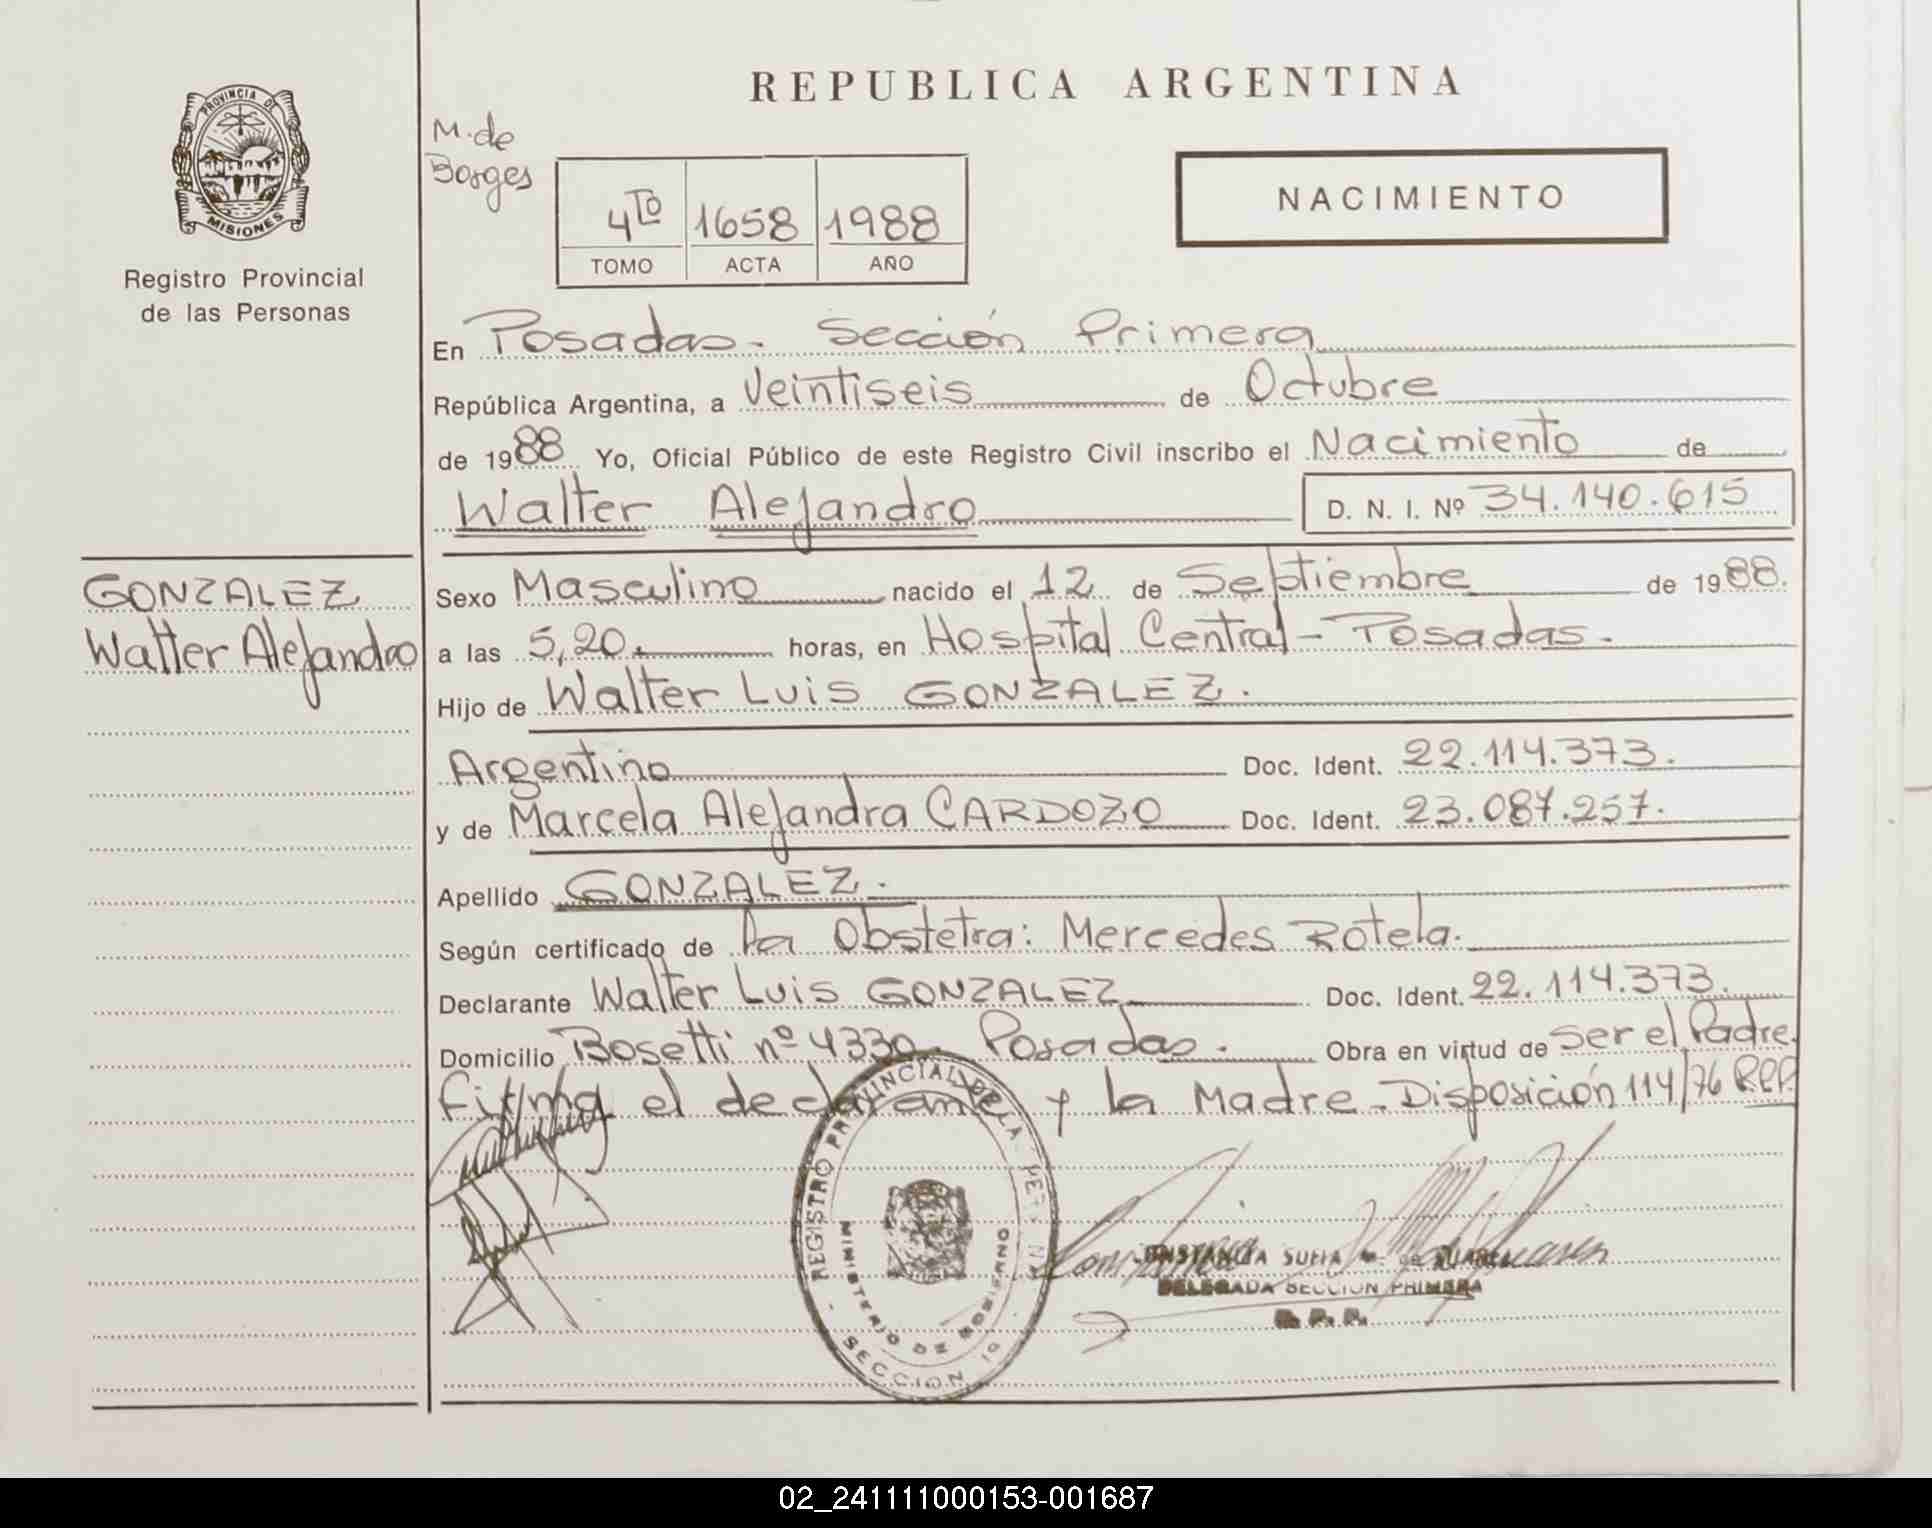 REPUBLICA ARGENTINA
PROVINCIA DE
MISIONES
Registro Provincial
de las Personas
M. de
Borges
4TO 1658 1988
TOMO ACTA AÑO
NACIMIENTO
En Posadas. Sección Primera
República Argentina, a Veintiseis de Octubre
de 1988 Yo, Oficial Público de este Registro Civil inscribo el Nacimiento de
Walter Alejandro D. N. I. Nº 34.140.615
GONZALEZ
Walter Alejandro
Sexo Masculino nacido el 12 de Septiembre de 1988.
a las 5,20. horas, en Hospital Central - Posadas.
Hijo de Walter Luis GONZALEZ.
Argentino Doc. Ident. 22.114.373.
y de Marcela Alejandra CARDOZO Doc. Ident. 23.087.257.
Apellido GONZALEZ.
Según certificado de la Obstetra: Mercedes Rotela.
Declarante Walter Luis GONZALEZ Doc. Ident. 22.114.373.
Domicilio Bosetti nº 4330. Posadas. Obra en virtud de ser el Padre.
Firma el declarante y la Madre - Disposición 114/76 R.P.P.
REGISTRO PROVINCIAL DE LA
MINISTERIO DE GOBIERNO
SECCION 1º
DE SUAREZ
DELEGADA SECCION PRIMERA
R. P. P.
02_241111000153-001687